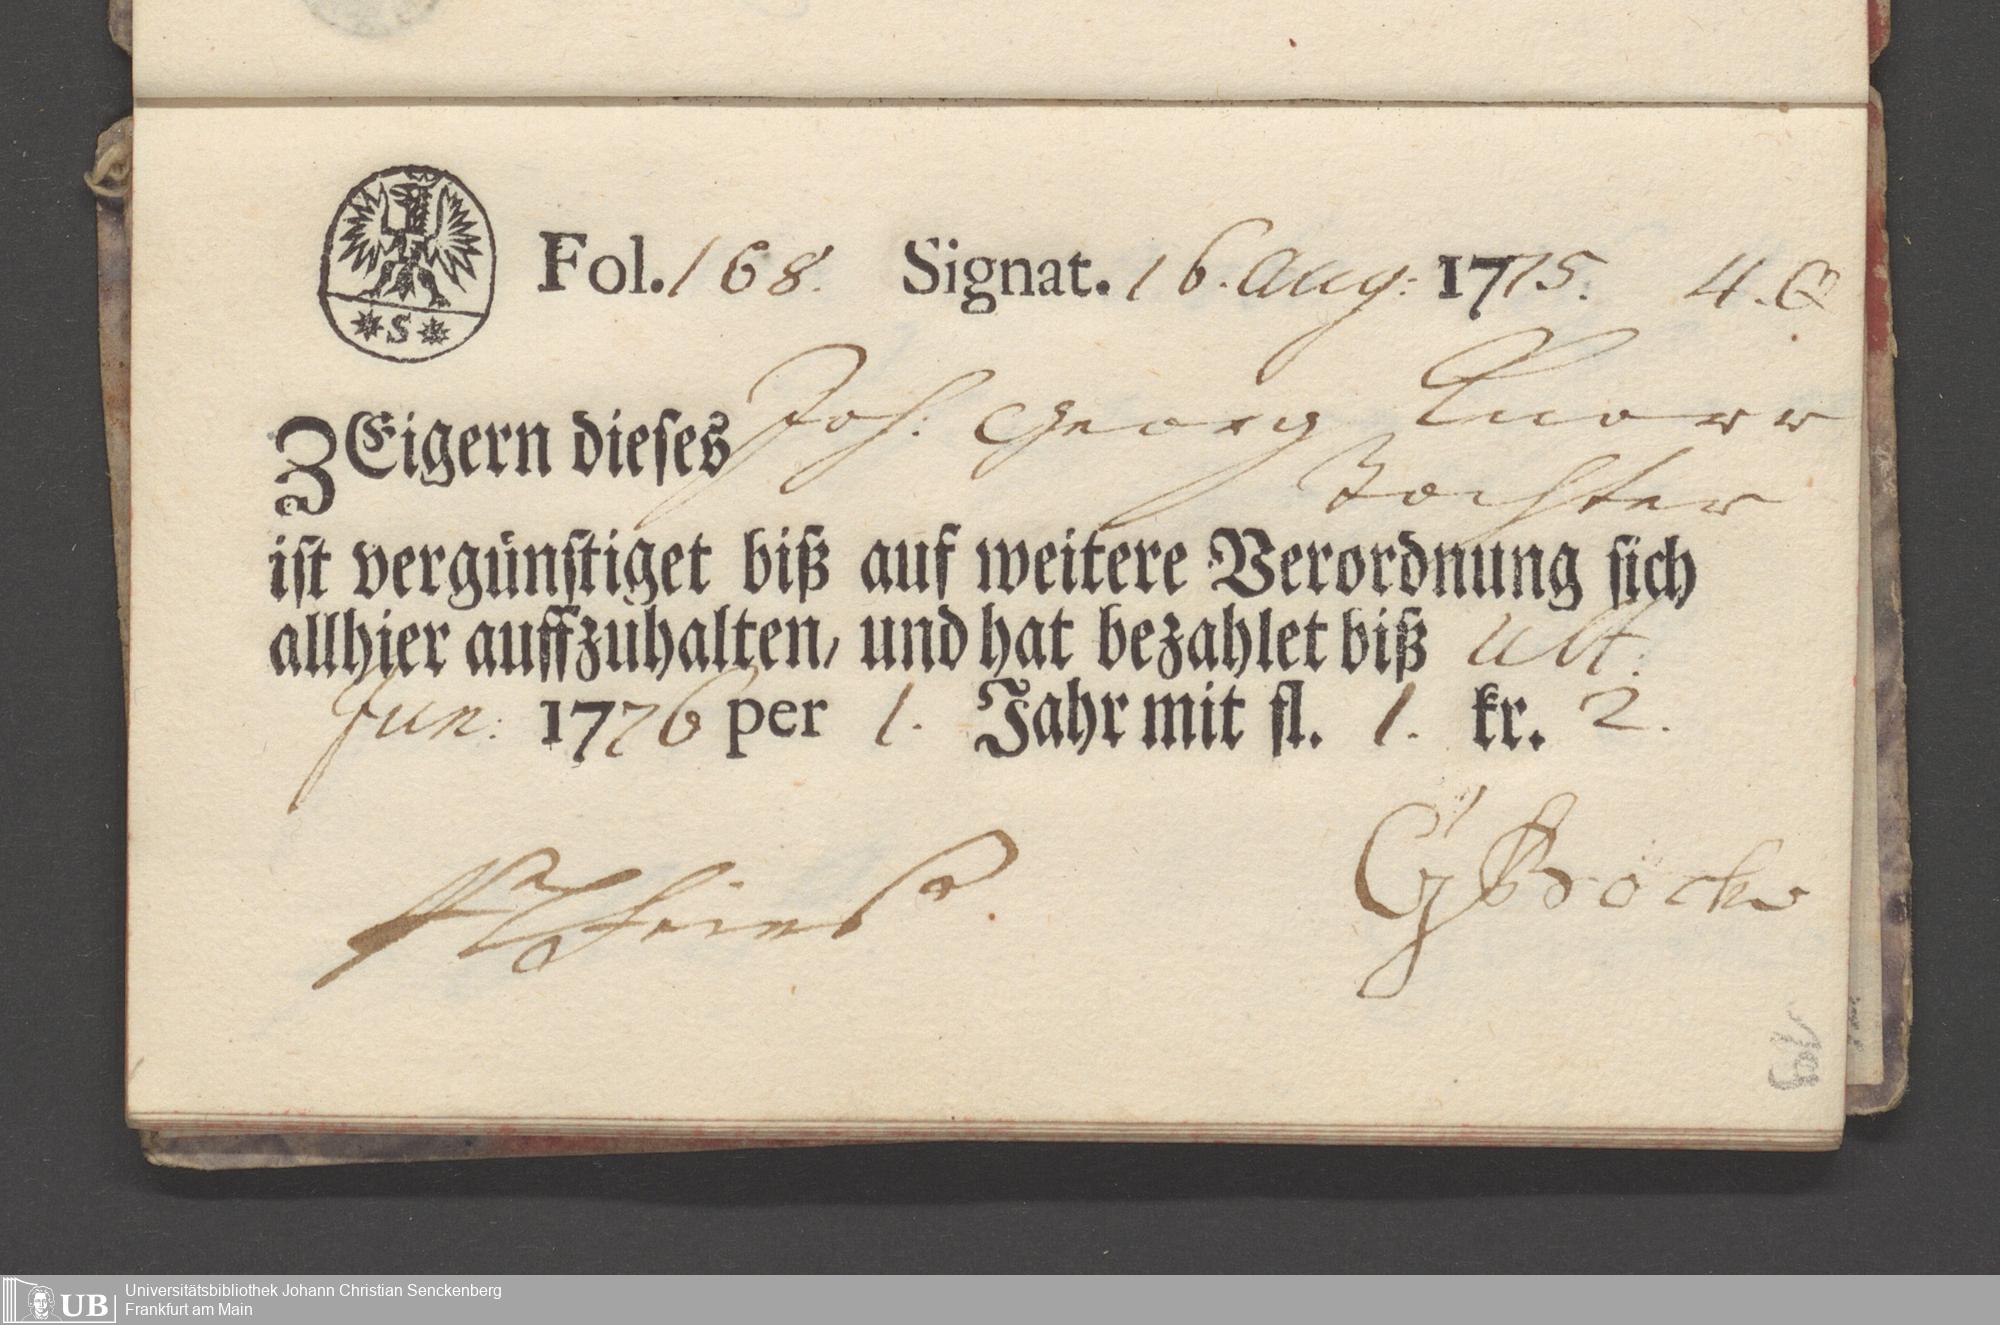 Fol. 168. Signat. 16. Aug: 1775. 4. Q
ZEigern dieses Joh: Georg Knorr
Tochter
ist vergünstiget biß auf weitere Verordnung sich
allhier auffzuhalten, und hat bezahlet biß Ult:
Jun: 1776 per 1. Jahr mit fl. 1. kr. 2.
*S*
UB Universitätsbibliothek Johann Christian Senckenberg
Frankfurt am Main